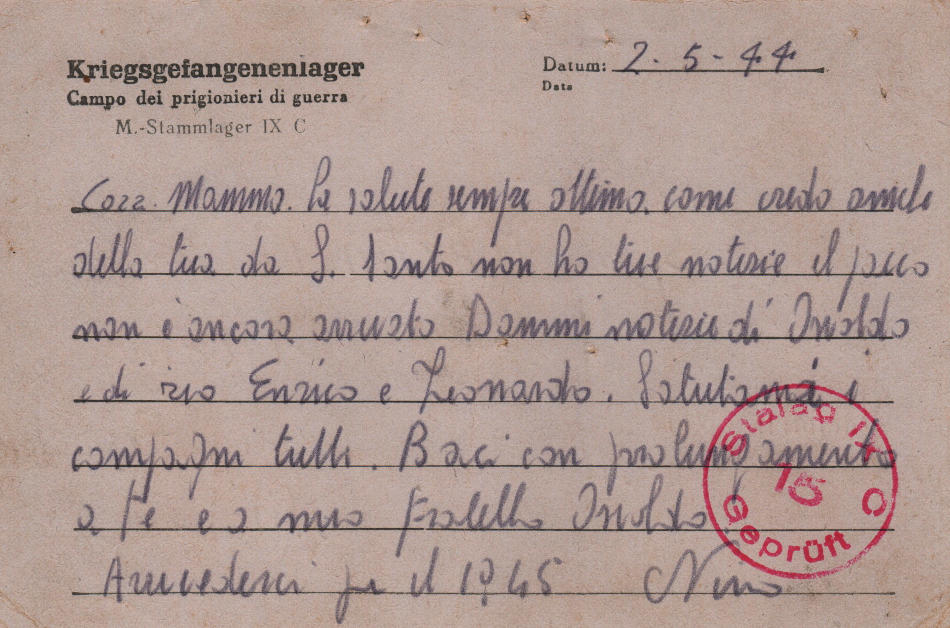 Kriegsgefangenenlager
Campo dei prigionieri di guerra
M.-Stammlager IX C
Datum: 2-5-44
Data
Cara Mamma. La salute sempre ottima. come credo anche
della tua da S. Santo non ho tue notizie il pacco
non è ancora arrivato Dammi notizie di
e di zio Enrico e Leonardo. Salutami i
compagni tutti. Baci con prolungamento
a te e a mio fratello
Arrivederci pe il 1945 Nino
Stalag IX C
15
Geprüft